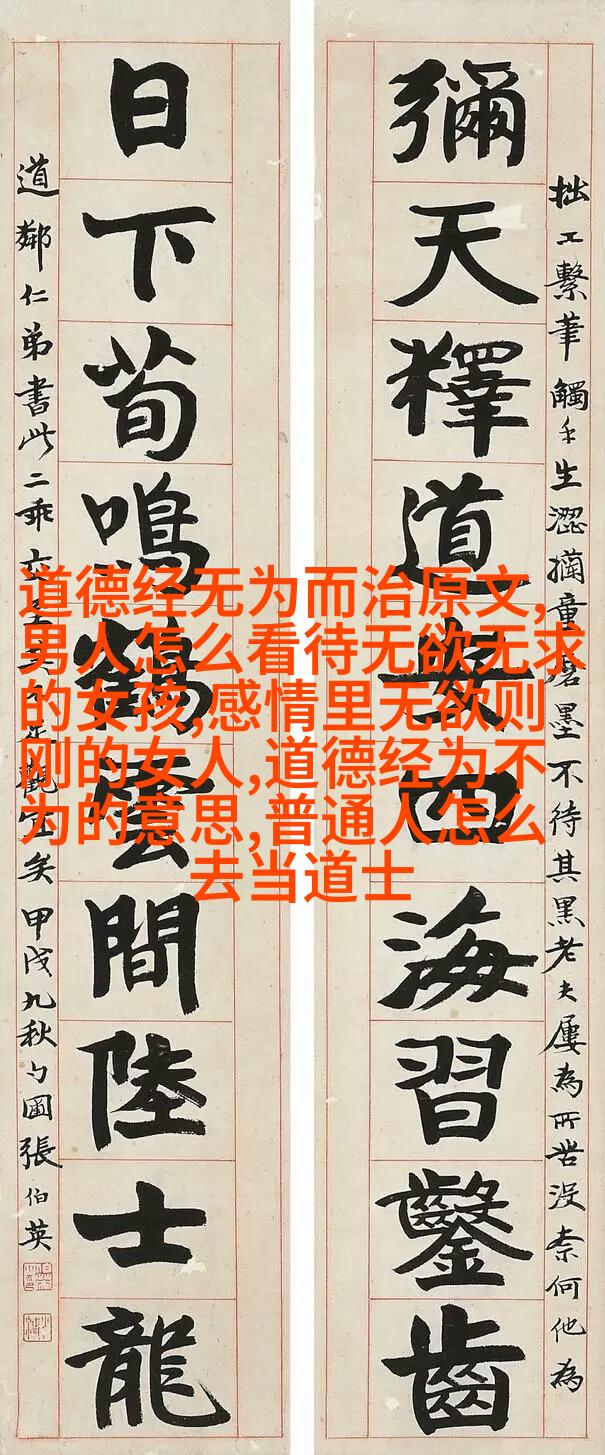 拙工繫筆觸手生澀擱童磨墨不待其黑老夫屢為所苦沒柰何他為
彌天釋道安四海習鑿齒
日下荀鳴鶴雲間陸士龍
道鄰仁弟書此二乖
矣甲戌九秋勺圃張伯英
道德经无为而治原文,
男人怎么看待无欲无求
的女孩,感情里无欲则
刚的女人,道德经为不
为的意思,普通人怎么
去当道士